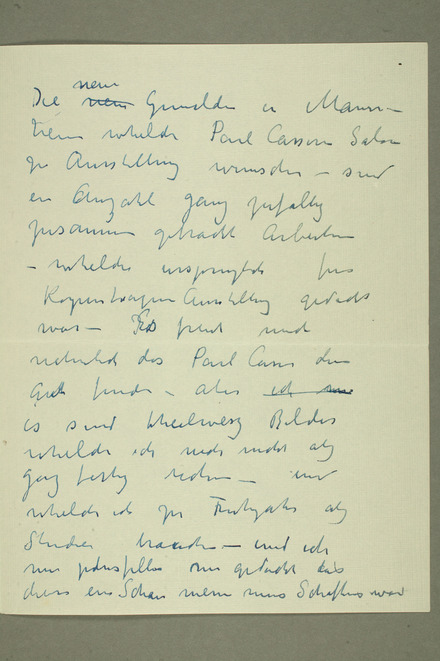 neun
Die neun Gemälde in Mann-
heim welche Paul Cassirer Salon
zur Ausstellung wünscht – sind
ein Anzahl ganz zufällig
zusammen gebracht Arbeiten
– welche ursprünglich fur
Kopenhagen Ausstellung gedacht
war – Es freut mich
naturlich das Paul Cassirer
gut finde – aber ich
es sind theilweise Bilder
welche ich noch nicht als
ganz fertig rechne – und
welche ich zu Frühjahr als
Studien brauche – und ich
nur gedacht das
dies eine Schau meines Schaffens war